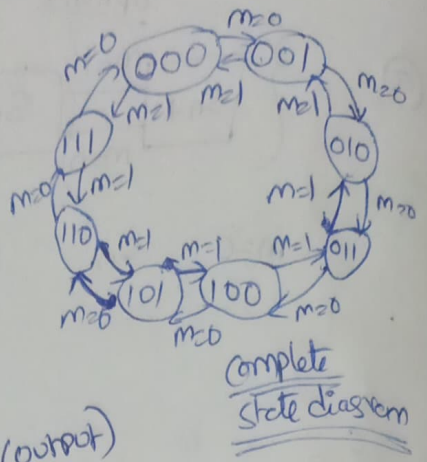 m=0
m=0
000
001
m=1
m=1
m=0
m=1
111
010
m=0
m=1
m=1
m=0
110
m=1
m=1
m=1
011
101
100
m=0
m=0
m=0
complete
state diagram
(output)